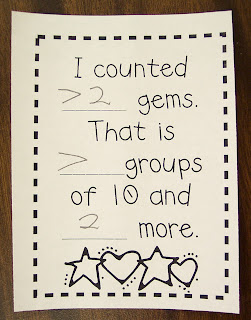 I counted
72 gems.
That is
7 groups
of 10 and
2 more.